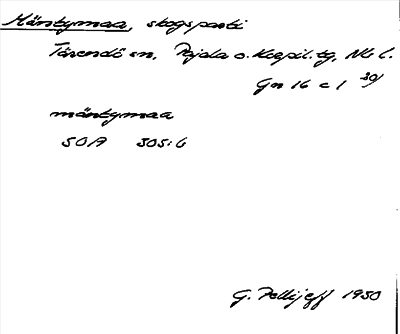 Mäntymaa, skogsparti
Tärendö sn, Pajala o. Korpil. tg, Nb l.
Gn 16 c 1
mäntymaa
50A 305:6
G. Pellijeff 1950